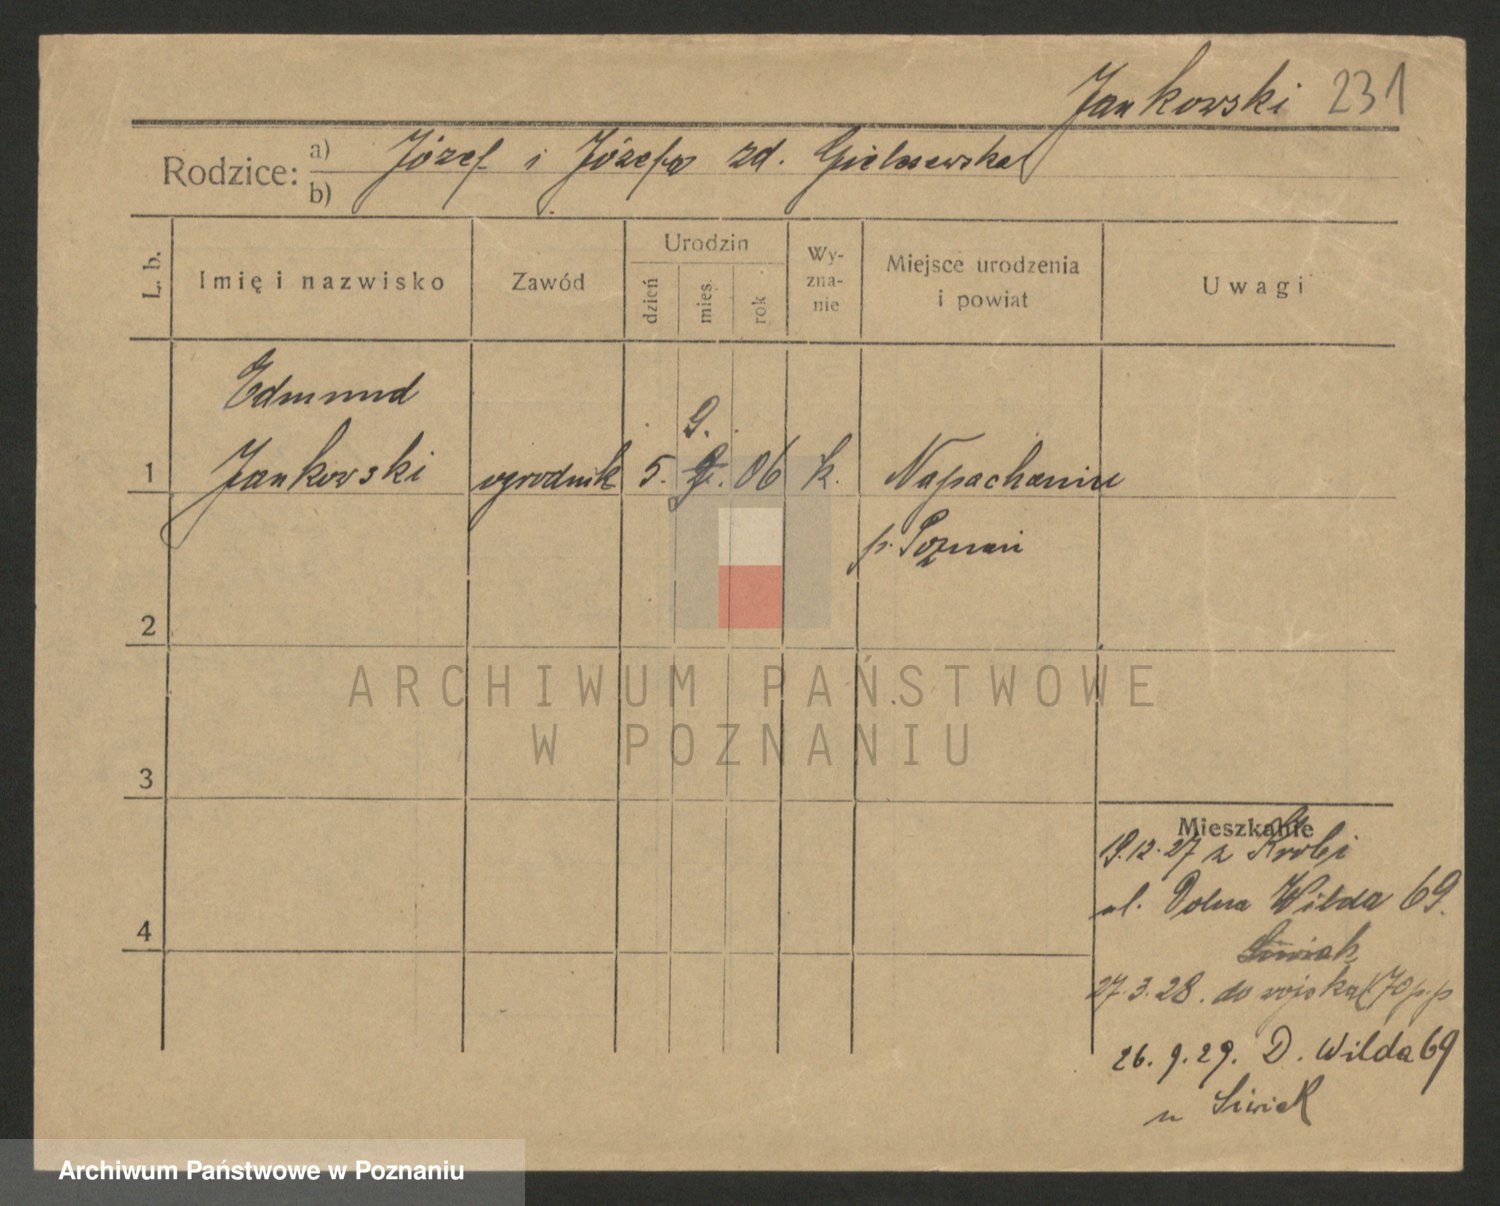 Jankowski 231
Rodzice: a) b) Józef i Józefa zd. Gielaszewska
L. b.
Imię i nazwisko
Zawód
Urodzin
dzień
mies.
rok
Wy-
zna-
nie
Miejsce urodzenia
i powiat
Uwagi
Edmund
9.
1 Jankowski ogrodnik 5. 06 k. Napachaniu
p. Poznań
2
ARCHIWUM PAŃSTWOWE
W POZNANIU
3
Mieszkanie
19.12.27 z Krobi
ul. Dolna Wilda 69.
4
Siwiak
27.3.28. do wojska (70 p.p
26.9.29. D. Wilda 69
u Siwiak
Archiwum Państwowe w Poznaniu